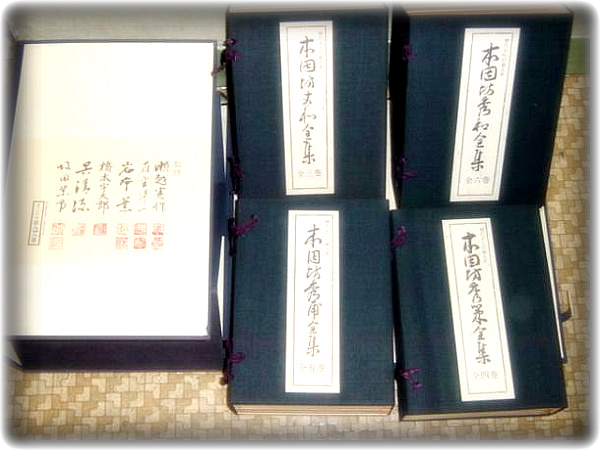 瀬越憲作
岩本薫
橋本宇太郎
呉清源
坂田栄男
本因坊丈和全集
全三巻
本因坊秀和全集
全六巻
本因坊秀甫全集
全五巻
本因坊秀策全集
全四巻